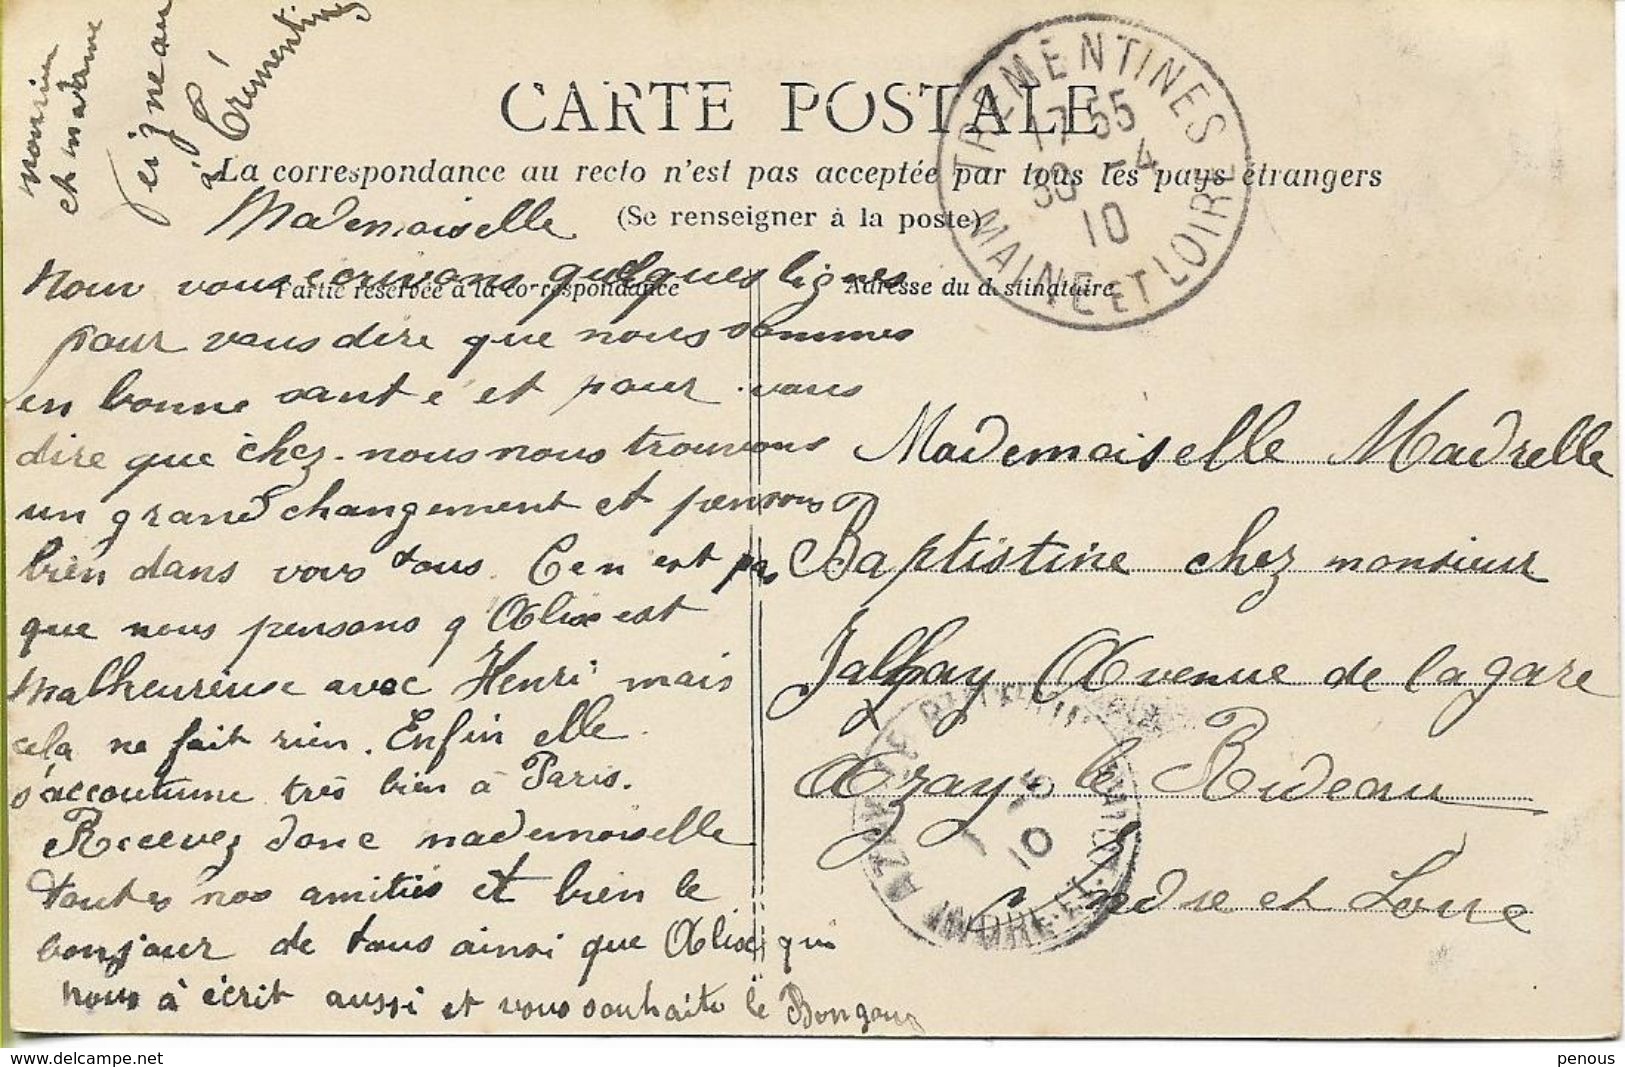 monsieur
et madame
Peigneau
à Trémentines
CARTE POSTALE
La correspondance au recto n'est pas acceptée par tous les pays étrangers
(Se renseigner à la poste)
Partie réservée à la correspondance
Adresse du destinataire
TREMENTINES
17 55
30 - 4
10
MAINE ET LOIRE
Mademoiselle
Nour vous ecrivons quelques lignes
pour vous dire que nous sommes
en bonne santé et pour vous
dire que chez nous nous trouvons
un grand changement et pensons
bien dans vous tous. Ce n est pas
que nous pensons q Alixe est
malheureuse avec Henri mais
cela ne fait rien. Enfin elle
s'accoutume très bien à Paris.
Recevez donc mademoiselle
toutes nos amitiés et bien le
bonjour de tous ainsi que Alixe qui
nous à écrit aussi et vous souhaite le Bonjour
Mademoiselle Madrelle
Baptistine chez monsieur
Jalhay Avenue de la gare
Azay le Rideau
Indre et Loire
AZAY-LE-RIDEAU
10
INDRE-ET-LOIRE
penous
www.delcampe.net